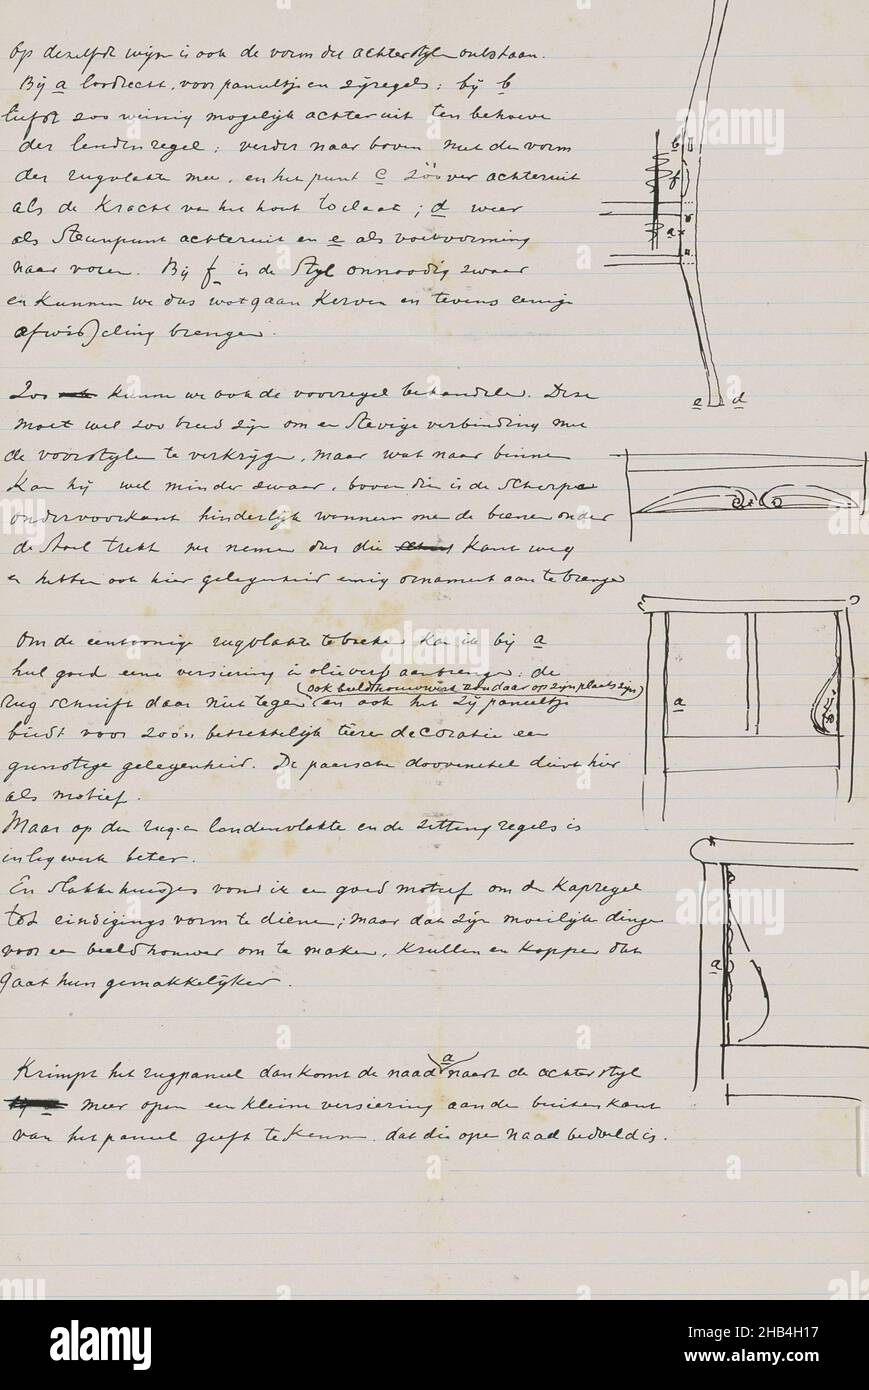 Op dezelfde wijze is ook de vorm der achterstijlen ontstaan.
Bij a loodrecht, voor paneeltje en zijregels; bij b
liefst zoo weinig mogelijk achteruit ten behoeve
der lendenregel; verder naar boven met den vorm
der rugvlakte mee, en het punt c zóóver achteruit
als de kracht van het hout toelaat; d weer
als steunpunt achteruit en e als voetvorming
naar voren. Bij f is de Stijl onnoodig zwaar
en kunnen we dus wat gaan kerven en tevens eenige
afwisseling brengen.
Zoo kunnen we ook de voorregel behandelen. Deze
moet wel zoo breed zijn om een stevige verbinding met
de voorstijlen te verkrijgen, maar wat naar binnen
kan hij wel minder zwaar, bovendien is de scherpe
ondervoorkant hinderlijk wanneer men de beenen onder
de stoel trekt we nemen dus die kant weg
en hebben ook hier gelegenheid eenig ornament aan te brengen
Om de eentoonige rugvlakte te breken kan ik bij a
heel goed eene versiering in olieverf aanbrengen; de
(ook beeldhouwwerk zou daar op zijn plaats zijn)
rug schuift daar niet tegen en ook het zij paneeltje
biedt voor zoo'n betrekkelijk teere decoratie een
gunstige gelegenheid. De paarsche doovenetel dient hier
als motief.
Maar op den rug en lendenvlakte en de zittingregels is
inlegwerk beter.
En slakkehuisjes vond ik een goed motief om de kapregel
tot eindigingsvorm te dienen; maar dat zijn moeilijke dingen
voor een beeldhouwer om te maken, krullen en koppen dat
gaat hun gemakkelijker.
Krimpt het rugpaneel dan komt de naad a naast de achterstijl
meer open een kleine versiering aan de buitenkant
van het paneel geeft te kennen dat die open naad bedoeld is.
b
f
a
e d
a
a
alamy
Image ID: 2HB4H17
www.alamy.com